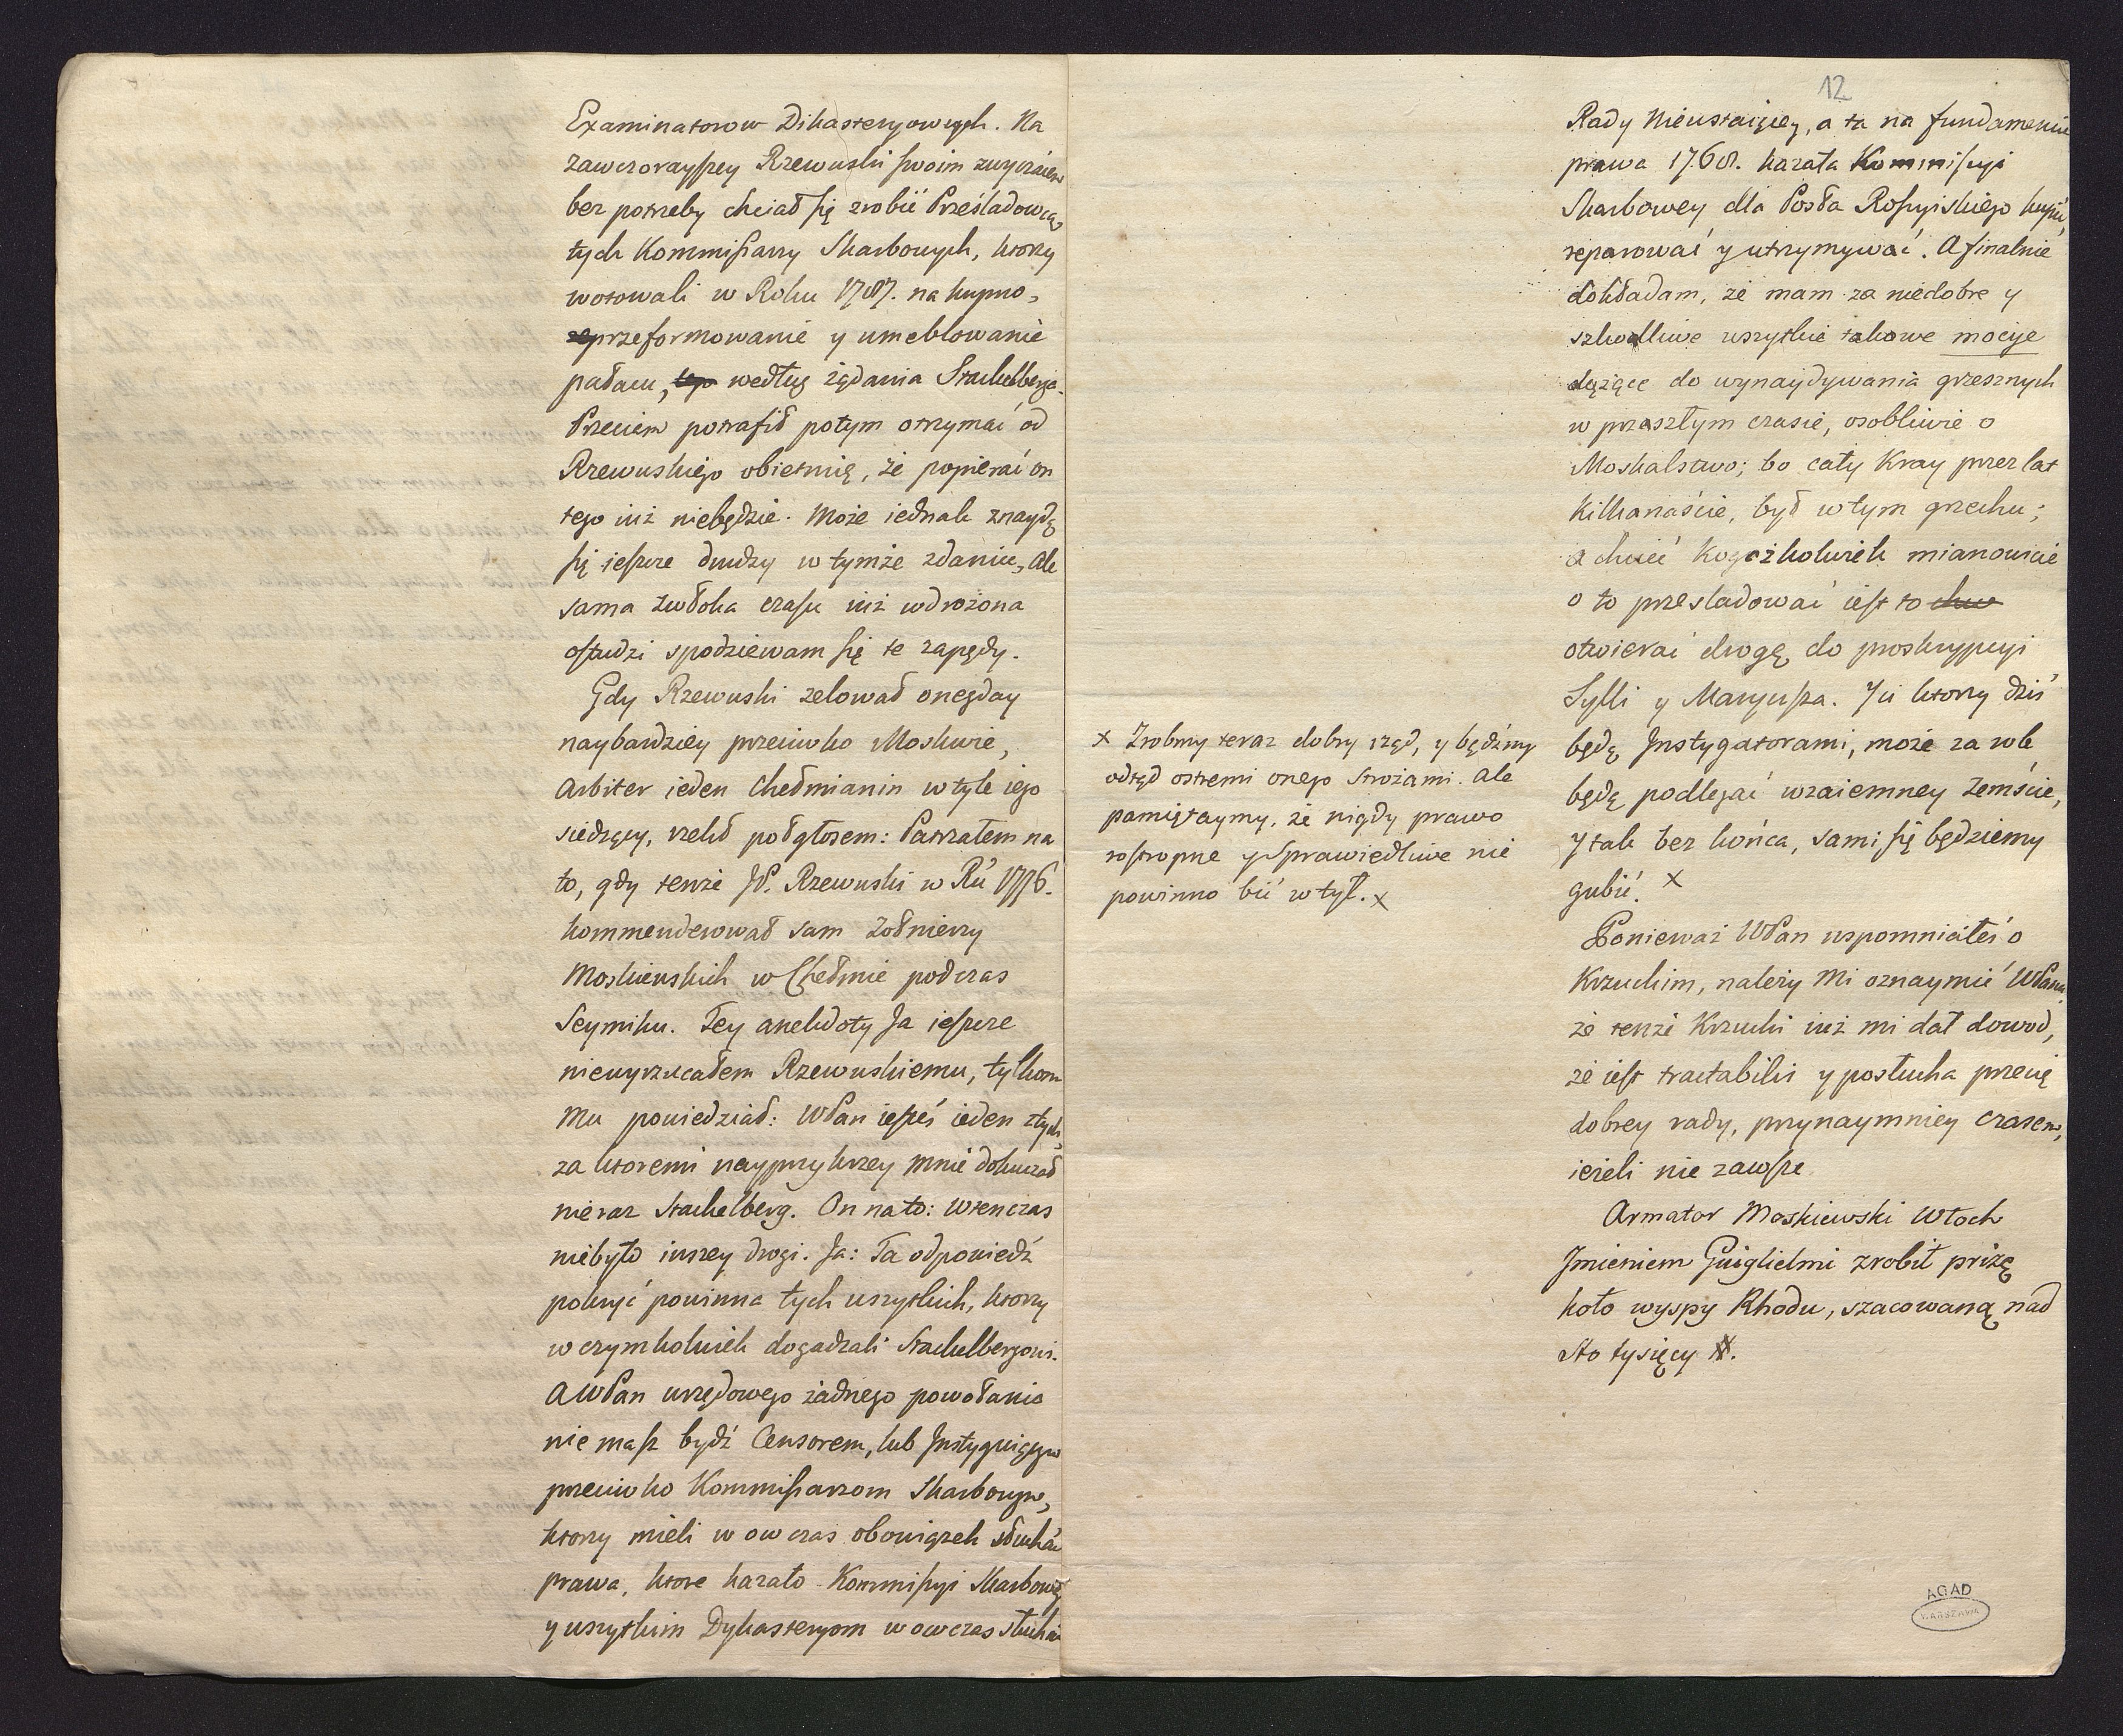 Examinatorow Dikasteryowych. Na
zawczorayszey Rzewuski swoim zwyczaiem
bez potrzeby chciał się zrobić Prześladowcą
tych Kommissarzy Skarbowych, ktorzy
wotowali w Roku 1787. na kupno,
przeformowanie y umeblowanie
pałacu, według żądania Stackelberga.
Przeciem potrafił potym otrzymać od
Rzewuskiego obietnicę, że popierać on
tego iuż niebędzie. Może iednak znaydą
się ieszcze drudzy w tymże zdaniu, Ale
sama zwłoka czasu iuż wdrożona
ostudzi spodziewam się te zapędy.
Gdy Rzewuski zelował onegday
naybardziey przeciwko Moskwie,
Arbiter ieden Chełmianin w tyle iego
siedzący, rzekł pod głosem: Patrzałem na
to, gdy tenże JP. Rzewuski w Rú 1776.
kommenderował sam żołnierzy
Moskiewskich w Chełmie podczas
Seymiku. Tey anekdoty Ja ieszcze
niewyrzucałem Rzewuskiemu, tylkom
Mu powiedział: WPan iesteś ieden z tych,
za ktoremi nayprzykrzey mnie dokuczał
nieraz Stackelberg. On na to: Wtenczas
niebyło inszey drogi. Ja: Ta odpowiedź
pokryć powinna tych wszystkich, ktorzy
w czymkolwiek dogadzali Stackelbergowi.
A WPan urzędowego żadnego powołania
nie masz bydź Censorem, lub Instyguiącym
przeciwko Kommissarzom Skarbowym,
ktorzy mieli w ow czas obowiązek słuchać
prawa, ktore kazało Kommissyi Skarbowey
y wszystkim Dykasteryom w owczas słuchać
12
Rady Nieustaiącey, a ta na fundamencie
prawa 1768. kazała Kommissyi
Skarbowey dla Posła Rossyiskiego kupić,
reparować y utrzymywać. A finalnie
dokładam, że mam za niedobre y
szkodliwe wszystkie takowe mocye
dążące do wynaydywania grzesznych
w przeszłym czasie, osobliwie o
Moskalstwo; bo cały Kray przez lat
kilkanaście, był w tym grzechu;
a chcieć kogożkolwiek mianowicie
o to prześladować iest to
otwierać drogę do proskrypcyi
Sylli y Maryusza. I ci ktorzy dziś
będą Instygatorami, może za rok
będą podlegać wzaiemney zemście,
y tak bez końca, sami się będziemy
gubić. x
x Zrobmy teraz dobry rząd, y będźmy
odtąd ostremi onego Strożami. Ale
pamiętaymy, że nigdy prawo
rostropne y Sprawiedliwe nie
powinno bić w tył. x
Ponieważ WPan wspomniałeś o
Krzuckim, należy Mi oznaymić WPanu,
że tenże Krzucki iuż mi dał dowod,
że iest tractabilis y posłucha przecię
dobrey rady, przynaymniey czasem,
ieżeli nie zawsze.
Armator Moskiewski Włoch
Imieniem Guiglielmi zrobił prizę
koło wyspy Rhodu, szacowaną nad
sto tysięcy #.
AGAD
WARSZAWA